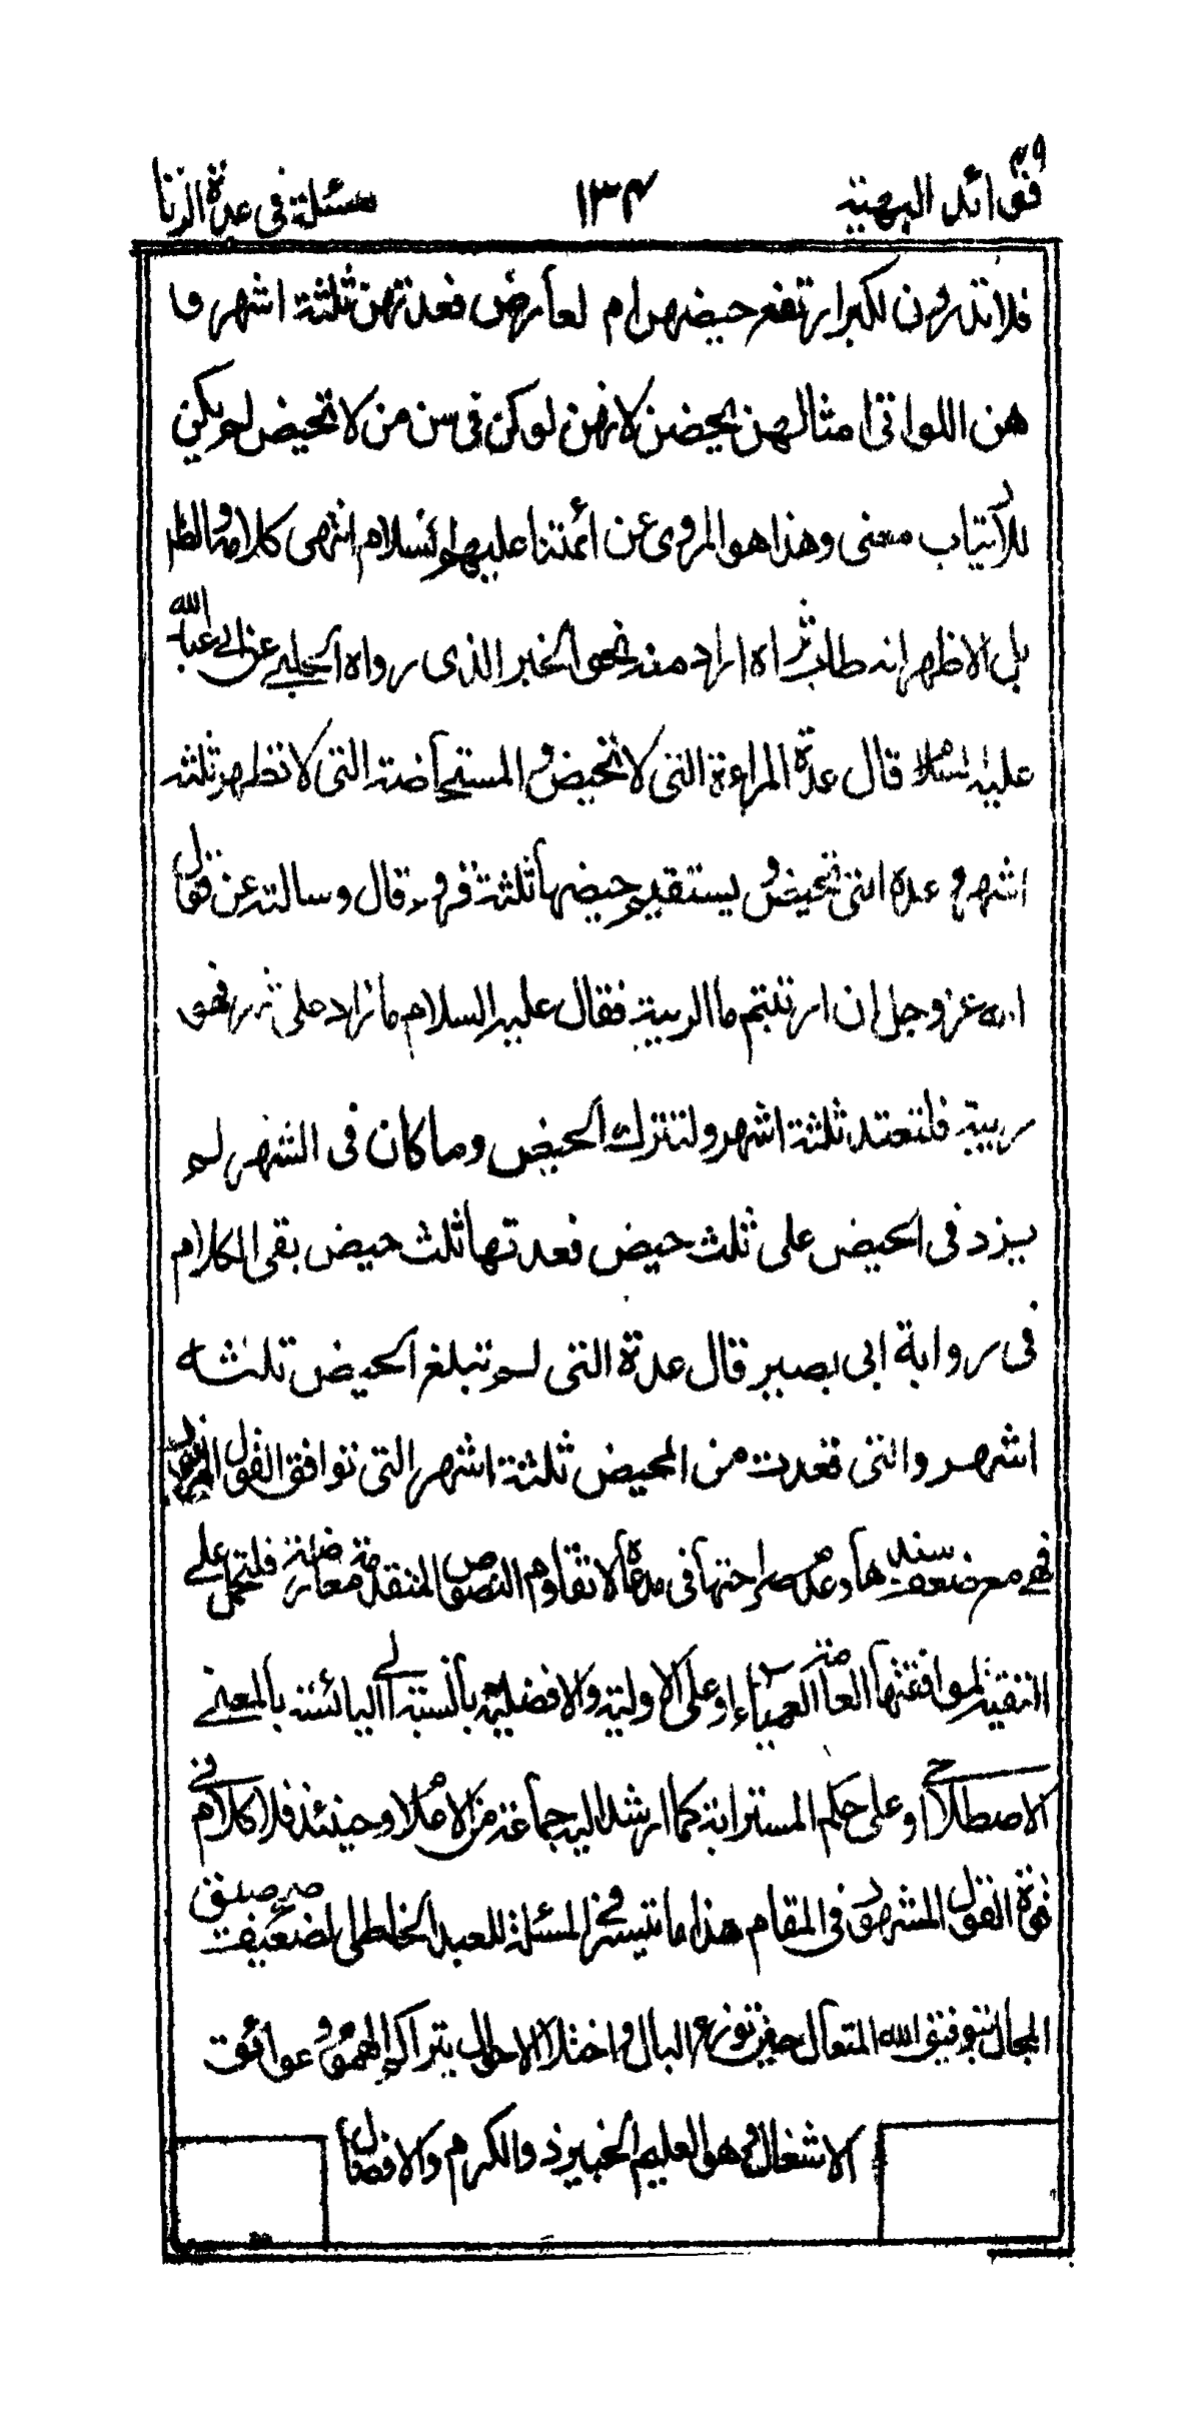 فوائد البهية ۱۳۴ مسئلة فی عدة الزنا
فلا تدرون لكبر ارتفع حیضهن ام لعارض فعدتهن ثلثة اشهر و
هن اللواتی امثالهن یحضن لانهن لو كن فی سن من لا تحیض لم یكن
للارتیاب معنی وهذا هو المروی عن ائمتنا علیهم السلام انتهی كلامه والظاهر
بل الاظهر انه طاب ثراه اراد منه نحو الخبر الذی رواه الحلبی عن ابی عبد الله
علیه السلام قال عدة المراءة التی لا تحیض و المستحاضة التی لا تطهر ثلثة
اشهر و عدة التی تحیض و یستقیم حیضها ثلثة قروء قال و سالته عن قول
الله عز و جل ان ارتبتم ما الریبة فقال علیه السلام ما زاد علی شهر فهو
ریبة فلتعتد ثلثة اشهر ولتترك الحیض وما كان فی الشهر لم
یزد فی الحیض علی ثلث حیض فعدتها ثلث حیض بقی الكلام
فی روایة ابی بصیر قال عدة التی لم تبلغ الحیض ثلثة
اشهر والتی قعدت من المحیض ثلثة اشهر التی توافق القول
فهی مع ضعف سندها و عدم صراحتها فی مدعاه لا تقاوم النصوص المتقدمة معارضة فلتحمل علی
التقیة لموافقتها العامة العمیاء او علی الاولیة والافضلیة بالنسبة الی الیائسة بالمعنی
الاصطلاحی او علی حكم المسترابة كما ارشد الیه جماعة من الاعلام وحینئذ فلا كلام فی
قوة القول المشهور فی المقام هذا ما تیسر فی تحریر المسئلة للعبد الخاطی الضعیف فی ضیق
المجال بتوفیق الله المتعال حین توزع البال و اختلال الاحوال بتراكم الهموم و عوائق
الاشغال و هو العلیم الخبیر ذو الكرم والافضال